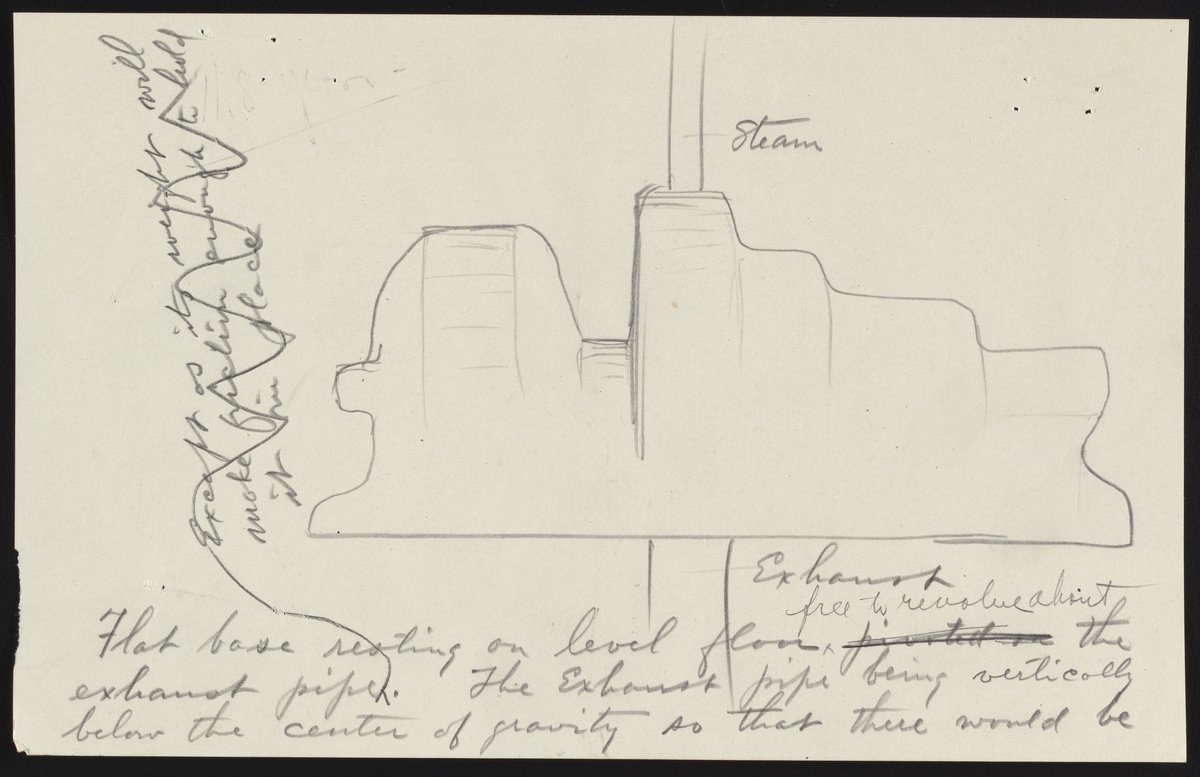 Steam
Except as its weight will
make friction enough to hold
it in place
Exhaust
free to revolve about
Flat base resting on level floor, pivoted on the
exhaust pipe. The Exhaust pipe being vertically
below the center of gravity so that there would be